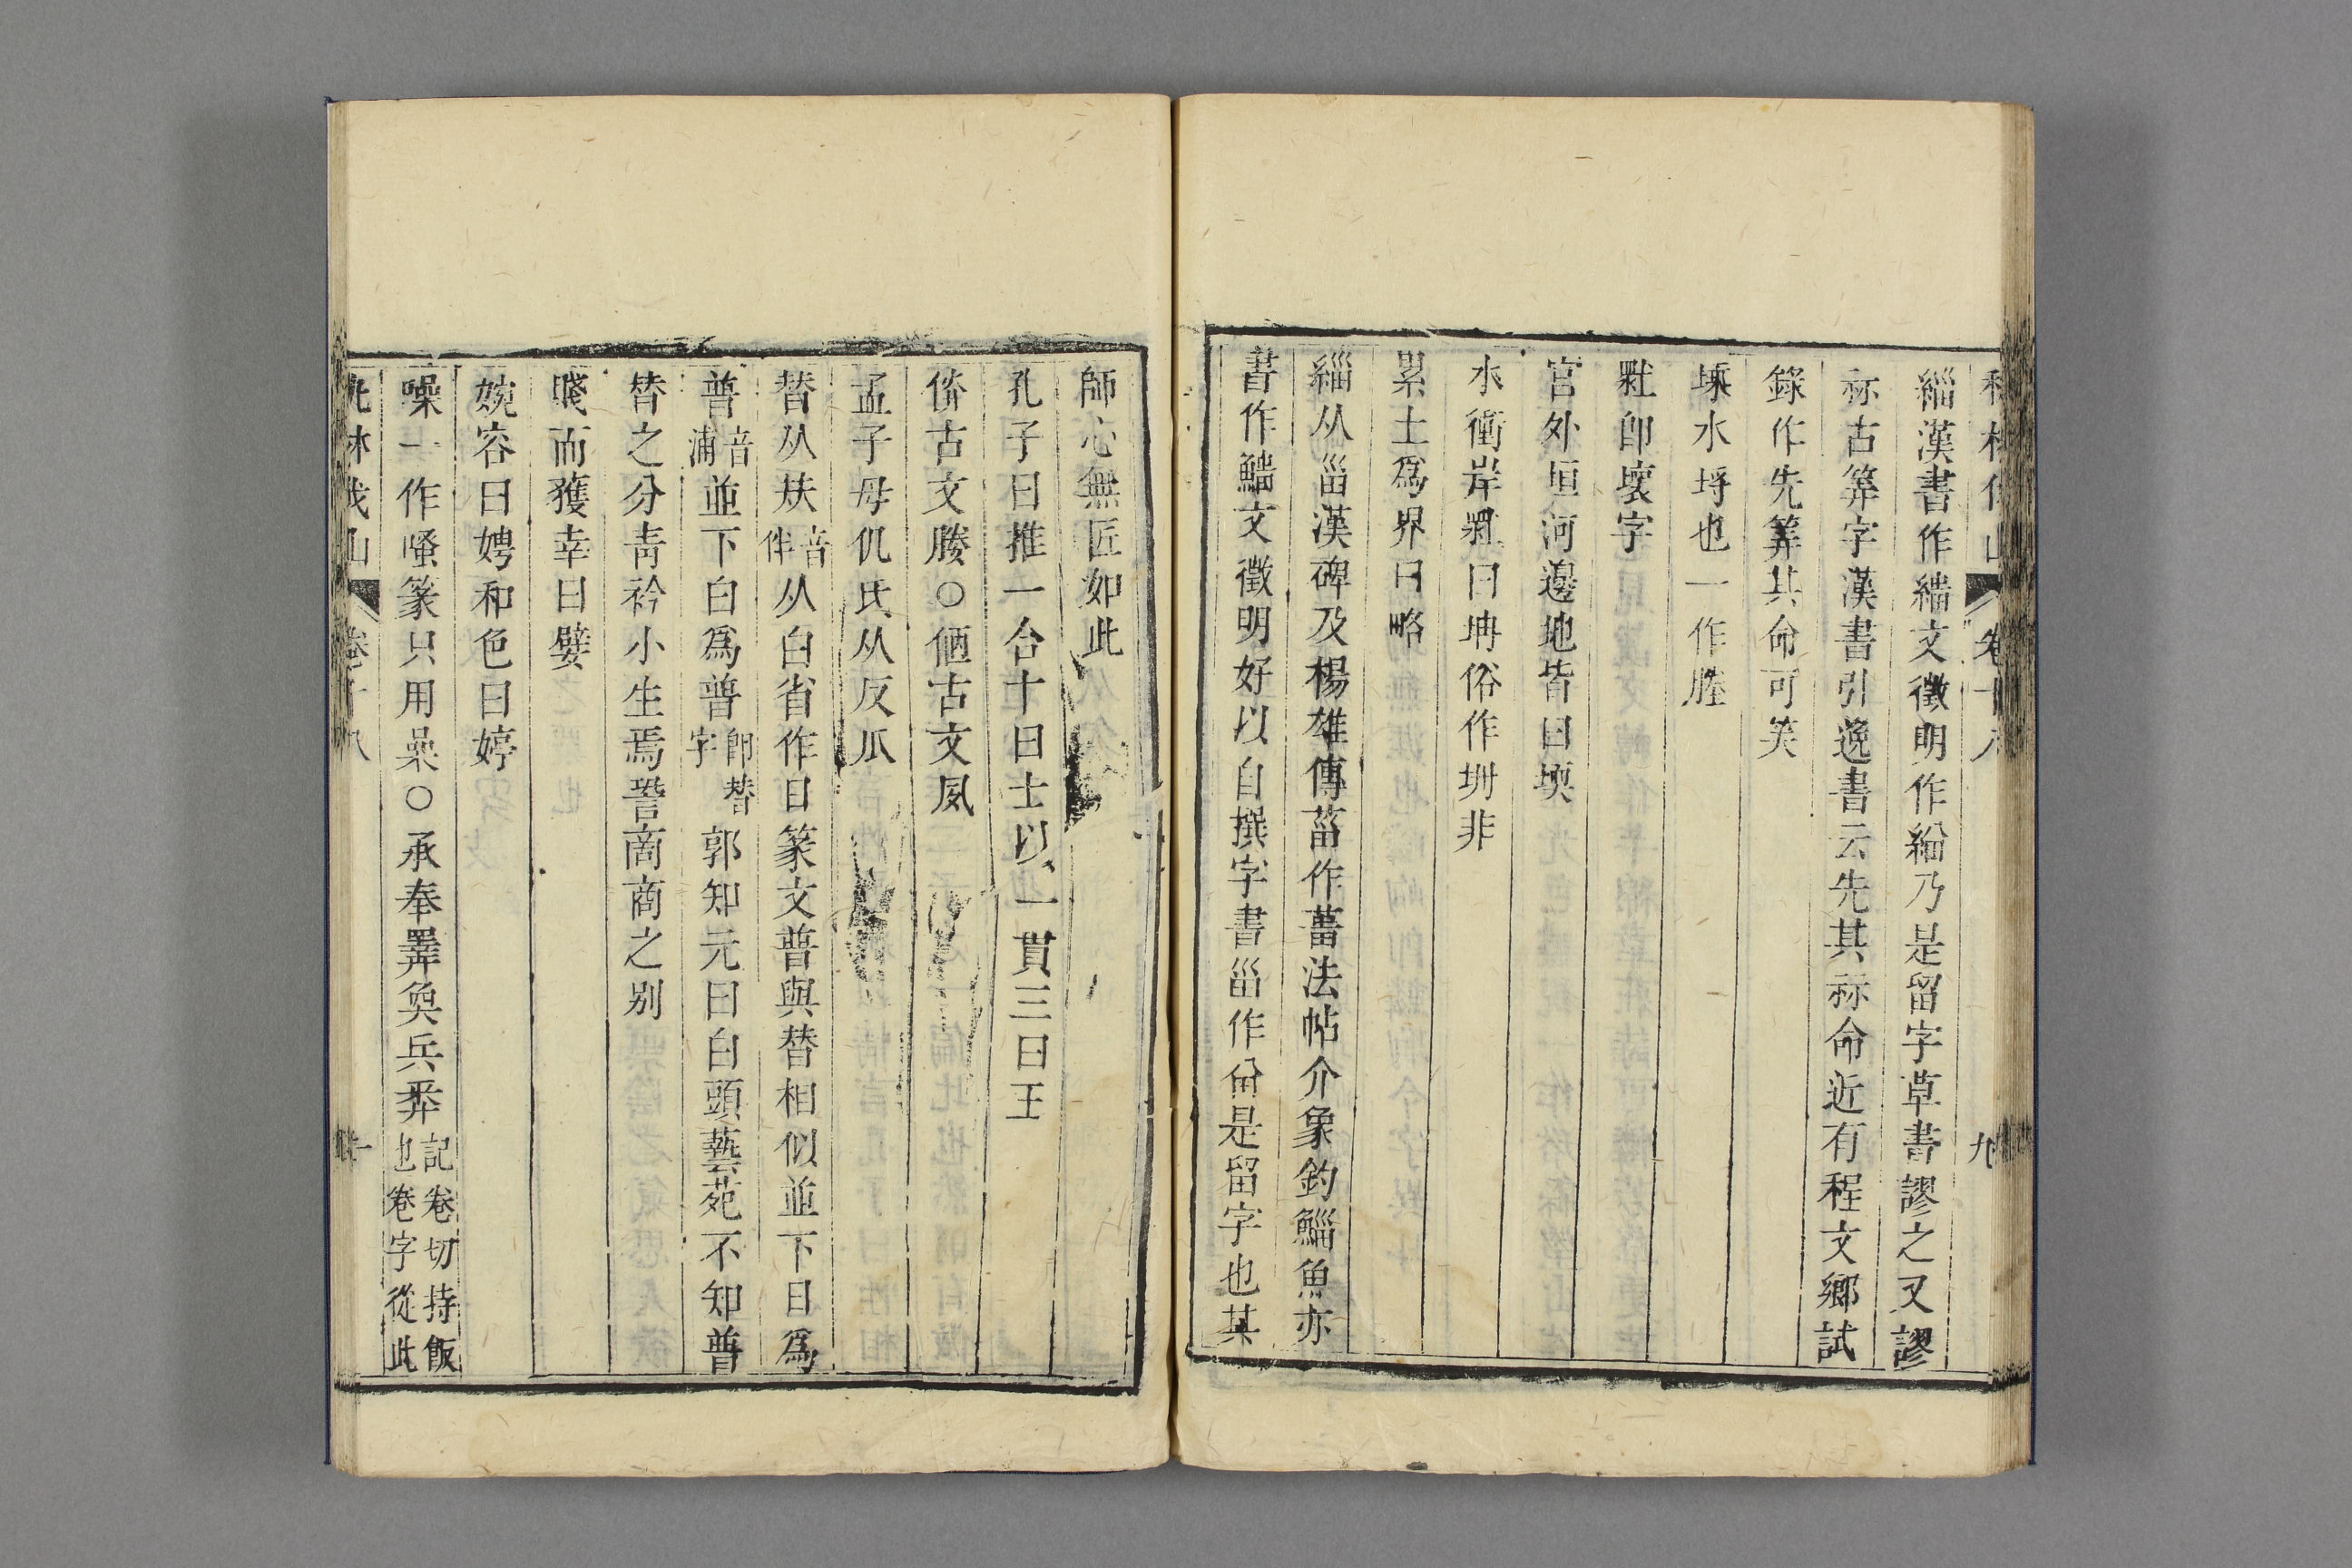 緇漢書作䌓文徵明作緇乃是留字草書謬之又謬
祘古筭字漢書引逸書云先其祘命近有程文鄉試
錄作先筭其命可笑
堘水埓也一作塍
㱰卽壞字
宮外垣河邊地皆曰堧
水衝岸㱰曰坍俗作坍非
累土爲界曰略
緇从甾漢碑及楊雄傳菑作葘法帖介象釣鯔魚亦
書作鯔文徵明好以自撰字書甾作畄是留字也其
師心無匠如此
孔子曰推一合十曰士以一貫三曰王
㑞古文勝○㑂古文夙
孟子母仉氏从反爪
替从㚘音伴从白省作日篆文普與替相似並下日爲
普音浦並下白爲替卽替字郭知元曰白頭藝苑不知普
替之分靑衿小生焉㗭啇商之別
賤而獲幸曰嬖
婉容曰娉和色曰婷
噪一作㗜篆只用喿○承奉𢍏奐兵弄
記卷切持飯
也卷字從此
卷十八